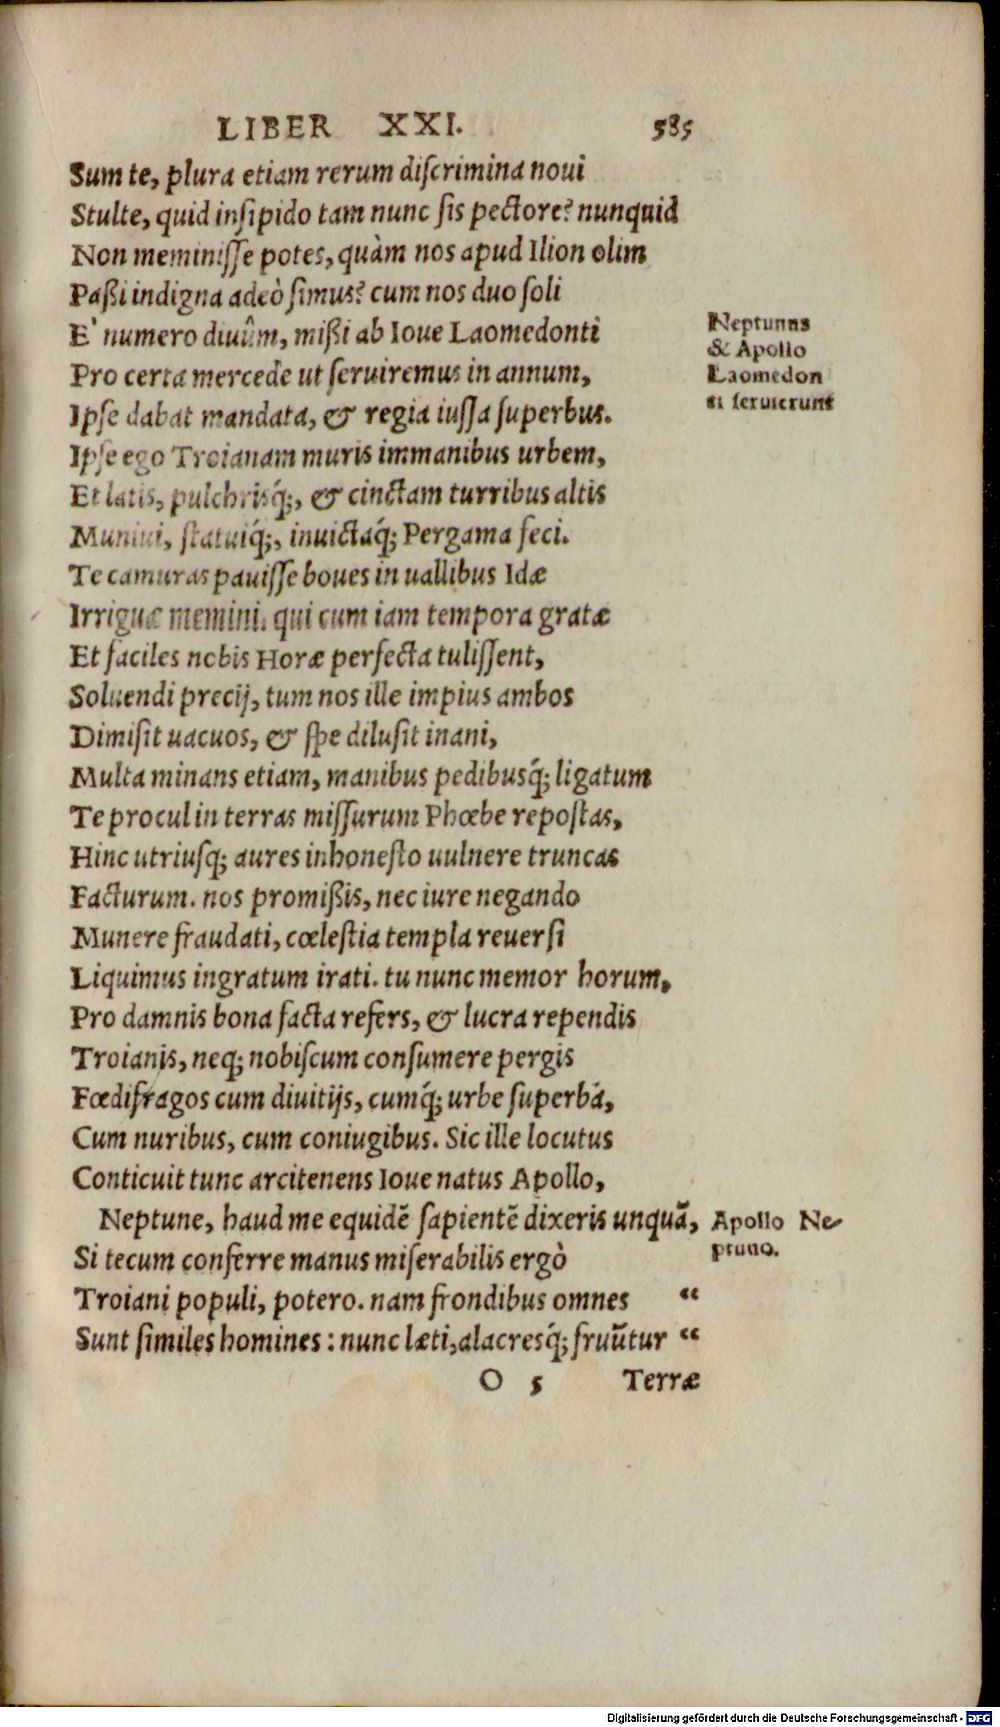 LIBER XXI. 585
Sum te, plura etiam rerum discrimina noui
Stulte, quid insipido tam nunc sis pectore? nunquid
Non meminisse potes, quàm nos apud Ilion olim
Paßi indigna adeò simus? cum nos duo soli
E` numero diuûm, mißi ab Ioue Laomedonti
Pro certa mercede ut seruiremus in annum,
Ipse dabat mandata, & regia iussa superbus.
Ipse ego Troianam muris immanibus urbem,
Et latis, pulchrisq́;, & cinctam turribus altis
Muniui, statuiq́;, inuictaq́; Pergama feci.
Te camuras pauisse boues in uallibus Idæ
Irriguæ memini. qui cum iam tempora gratæ
Et faciles nobis Horæ perfecta tulissent,
Soluendi precij, tum nos ille impius ambos
Dimisit uacuos, & spe dilusit inani,
Multa minans etiam, manibus pedibusq́; ligatum
Te procul in terras missurum Phœbe repostas,
Hinc utriusq; aures inhonesto uulnere truncas
Facturum. nos promißis, nec iure negando
Munere fraudati, cœlestia templa reuersi
Liquimus ingratum irati. tu nunc memor horum,
Pro damnis bona facta refers, & lucra rependis
Troianis, neq; nobiscum consumere pergis
Fœdifragos cum diuitijs, cumq́; urbe superba,
Cum nuribus, cum coniugibus. Sic ille locutus
Conticuit tunc arcitenens Ioue natus Apollo,
Neptune, haud me equidē sapientē dixeris unquā,
Si tecum conferre manus miserabilis ergò
Troiani populi, potero. nam frondibus omnes “
Sunt similes homines: nunc læti, alacresq́; fruūtur “
O 5 Terræ
Neptunus
& Apollo
Laomedon
ti seruierunt
Apollo Ne-
ptuno.
Digitalisierung gefördert durch die Deutsche Forschungsgemeinschaft - DFG